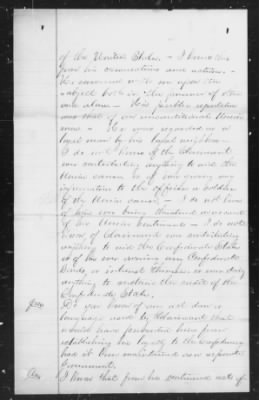 of the United States. - I know this
from his conversations and actions. -
He conversed with me upon the
subject both in the presence of others
and alone - His public reputation
was that of an unconditional Union
man - He was regarded as a
loyal man by his loyal neighbors -
I do not know of the Claimant
ever contributing anything to aid the
Union cause or of ever giving any
information to the officers or soldiers
of the Union cause. - I do not know
of his ever being threatened on account
of his Union sentiments - I do not
know of claimant ever contributing
anything to aid the Confederate States
or of his ever owning any Confederate
Bonds or interest therein or ever doing
anything to sustain the credit of the
Confederate States.
Ques Do you know of any act done or
language used by Claimant that
would have prevented him from
establishing his loyalty to the Confederacy
had it been maintained as a separate
Government.
Ans I know that from his continued acts of